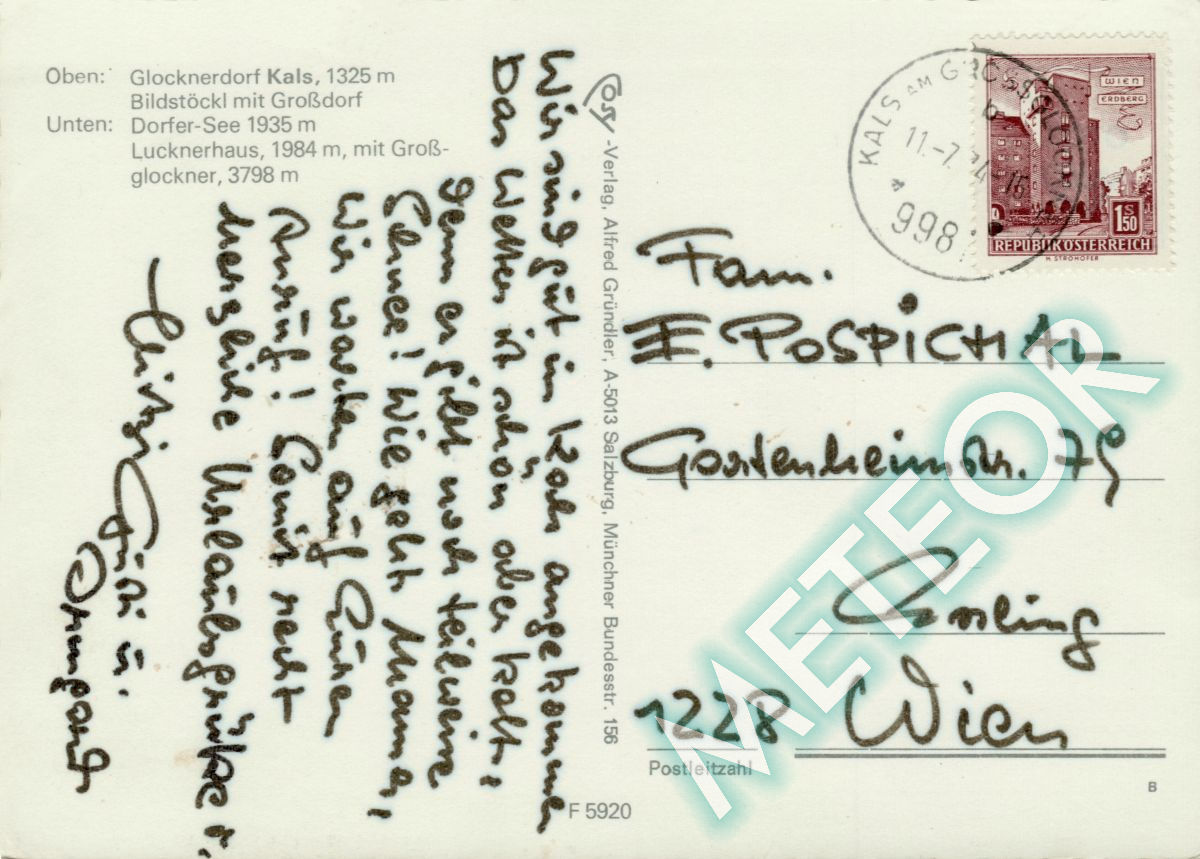 Oben: Glocknerdorf Kals, 1325 m
Bildstöckl mit Großdorf
Unten: Dorfer-See 1935 m
Lucknerhaus, 1984 m, mit Groß-
glockner, 3798 m
Wir sind gut in Kals angekommen
Das Wetter ist schön aber kalt,
denn es gibt noch teilweise
Schnee! Wie geht's Mama,
Wir warten auf Euren
Anruf! Somit recht
herzliche Urlaubsgrüße
u.
Irmgard
Cosy-Verlag, Alfred Gründler, A-5013 Salzburg, Münchner Bundesstr. 156
F 5920
KALS AM GROSSGLOCKNER
11.-7.74-16
998
WIEN
ERDBERG
S
1.50
REPUBLIK ÖSTERREICH
H. STROHOFER
Fam.
F. POSPICHAL
Gostenheimstr. 79
Essling
1228 Wien
Postleitzahl
B
METEOR